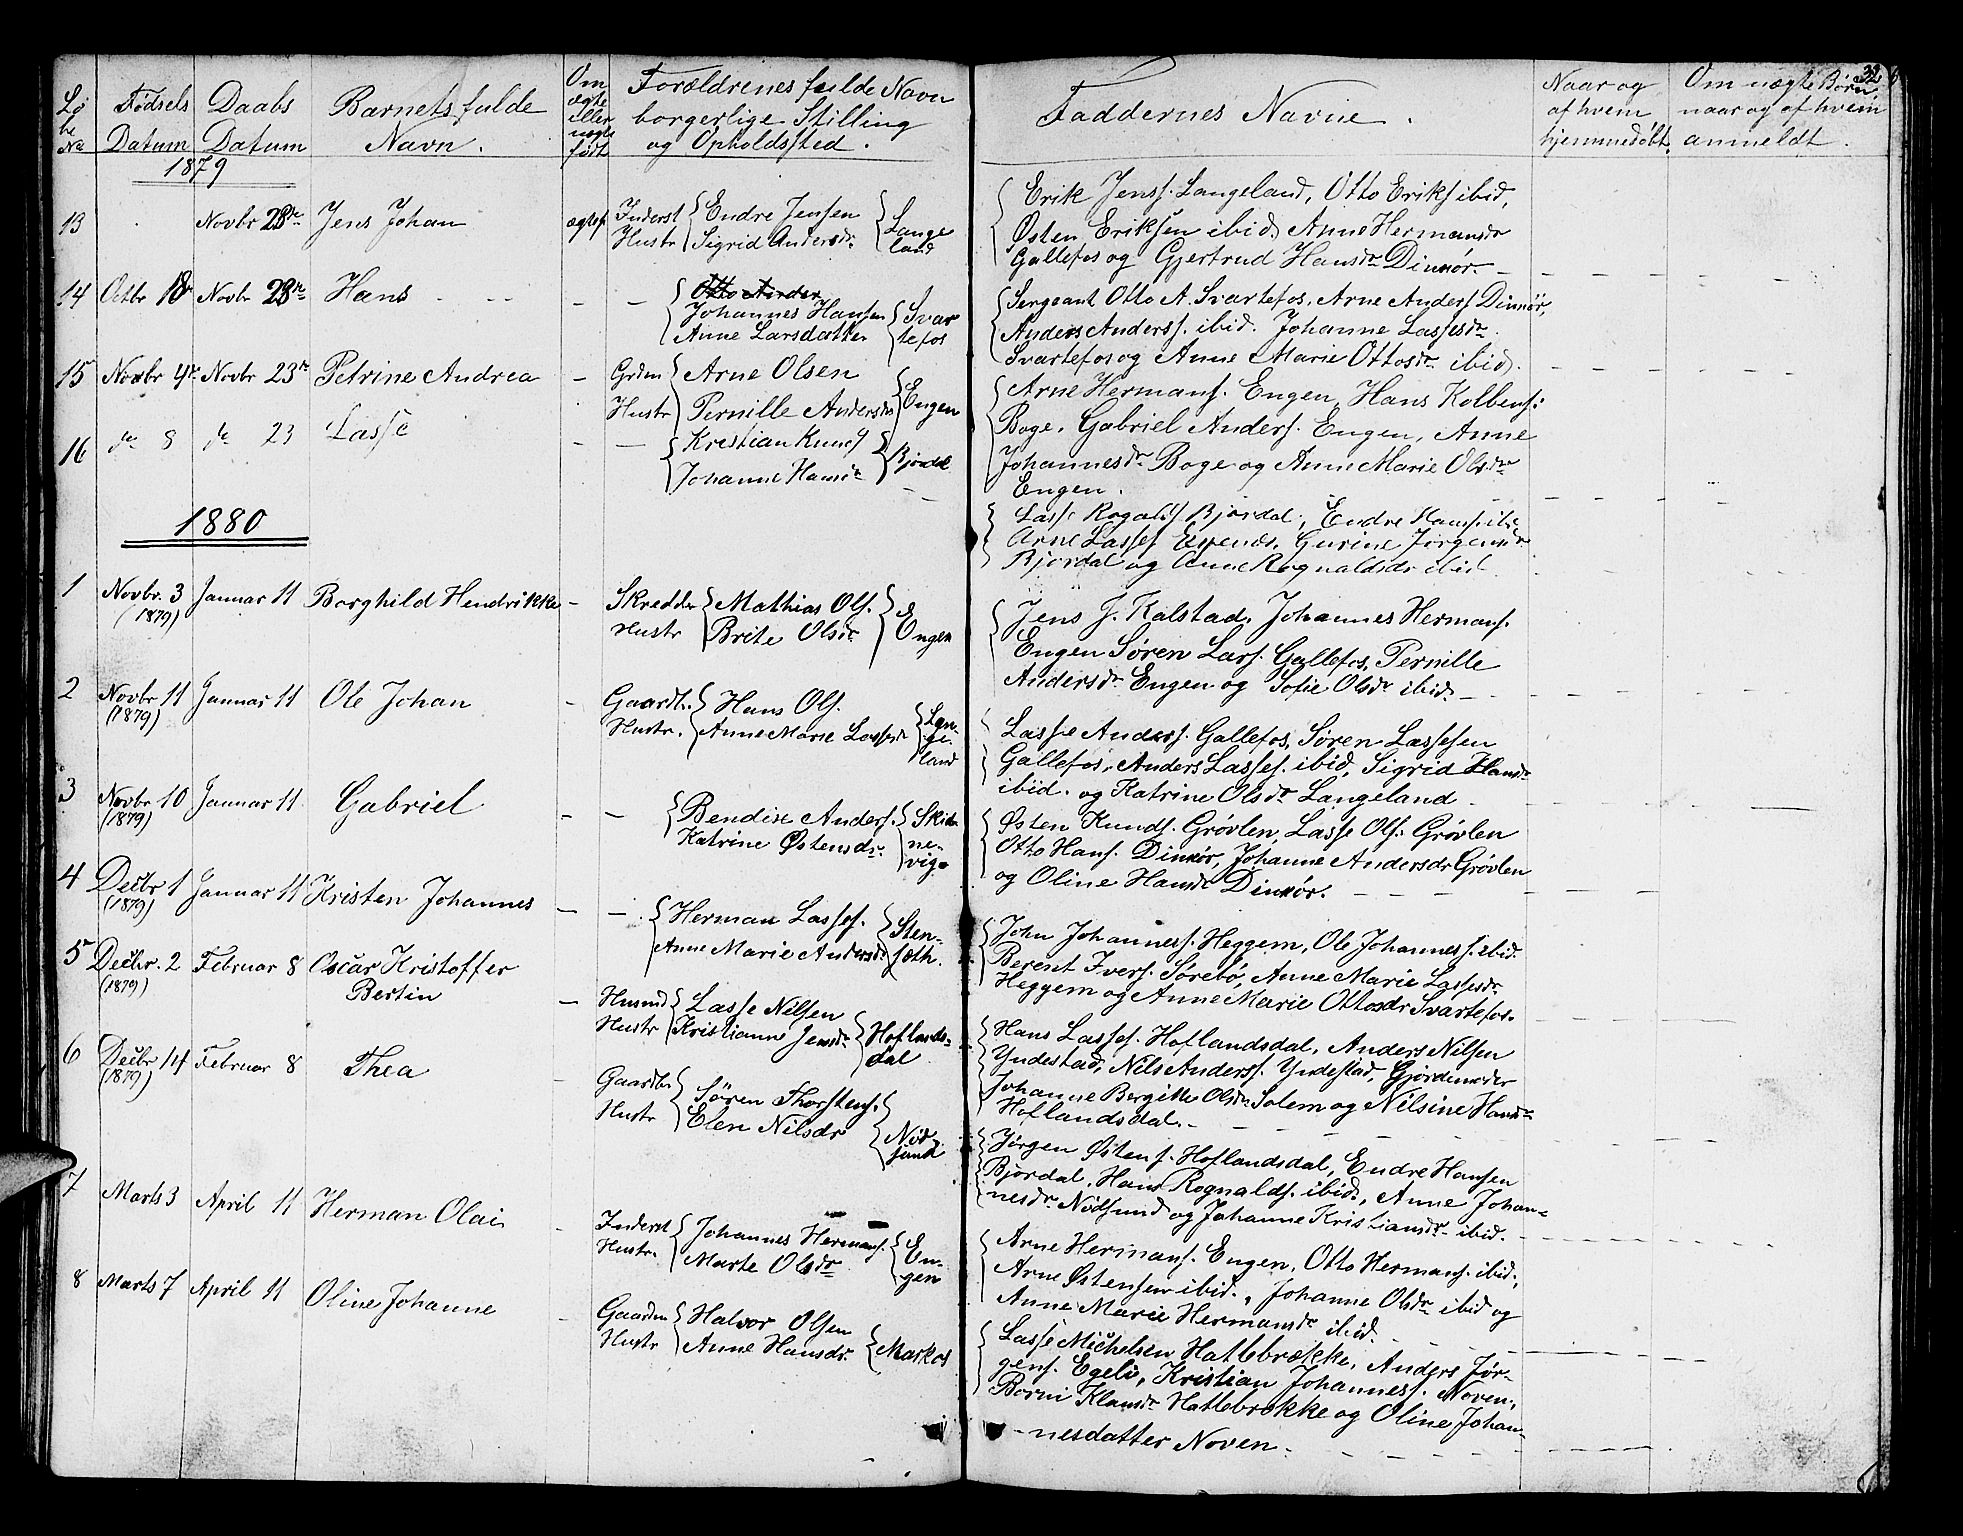 32
Lø
be
No
Fødsels
Datum
Daabs
Datum
Barnets fulde
Navn.
Om
ægte
eller
uægte
født
Forældrenes fulde Navn
borgerlige Stilling
og Opholdssted.
Faddernes Navne.
Naar og
af hvem
hjemmedøbt.
Om uægte Børn,
naar og af hvem
anmeldt.
1879
13 Novbr 23de Jens Johan ægtef. Inderst Endre Jensen Lange
Hustr Sigrid Andersdr. land
Erik Jenss. Langeland, Otto Eriks ibid,
Østen Eriksen ibid. Anne Hermansdr
Gallefos og Gjertrud Hansdr Dinnør.
14 Octbr 18 Novbr 23de Hans - - Otto Ander
Johannes Hansen Svar
Anne Larsdatter tefos
Sergeant Otto A. Svartefos, Arne Anders Dinnør,
Anders Anderss. ibid. Johanne Lassesdr.
Svartefos og Anne Marie Ottosdr ibid.
15 Novbr 4de Novbr 23de Petrine Andrea - Grdm Arne Olsen
Hustr Pernille Andersdr Engen
Arne Hermans. Engen, Hans Kolbens:
Boge, Gabriel Anders. Engen, Anne
Johannesdr Boge og Anne Marie Olsdr
Engen.
16 do 8 do 23 Lasse - - Kristian Knuds
Johanne Hansdr Bjordal
Lasse Rognalds Bjordal, Endre Hans. ibid
Arne Lasses Espenes, Gurine Jørgensdr
Bjordal og Anne Rognaldsdr ibid.
1880
1 Novbr. 3 Januar 11 Borghild Hendrikke - Skredder Mathias Ols.
(1879) Hustr Brite Olsdr. Engen
Jens J. Kalstad, Johannes Hermans.
Engen Søren Lars. Gallefos, Pernille
Andersdr. Engen og Sofie Olsdr ibid.
2 Novbr 11 Januar 11 Ole Johan - Gaardbr. Hans Ols.
(1879) Hustr. Anne Marie Lassesdr Lan-
ge-
land
Lasse Anders. Gallefos, Søren Lassesen
Gallefos, Anders Lasses. ibid, Sigrid Hansdr
ibid. og Katrine Olsdr Langeland.
3 Novbr 10 Januar 11 Gabriel - - Bendix Anders. Skib-
(1879) Katrine Østensdr. ne-
vig
Østen Knuds. Grövlen, Lasse Ols. Grövlen
Otto Hans. Dinnør, Johanne Andersdr Grövlen
og Oline Hansdr Dinnør.
4 Decbr 1 Januar 11 Kristen Johannes - - Herman Lasses. Sten-
(1879) Anne Marie Andersdr sæth.
John Johanness. Heggem, Ole Johanness. ibid.
Berent Ivers. Sørebø, Anne Marie Lassesdr.
Heggem og Anne Marie Ottosdr Svartefos.
5 Decbr. 2 Februar 8 Oscar Kristoffer
(1879) Bertin - Husmd Lasse Nilsen
Hustr Kristianne Jensdr. Hoflands-
dal
Hans Lasses. Hoflandsdal, Anders Nilsen
Yndestad, Nils Anderss. Yndestad, Gjørdemoder
Johanne Bergitte Olsdr. Solem og Nilsine Hansdr
Hoflandsdal.
6 Decbr 14 Februar 8 Thea - Gaardbr Søren Thorstens.
(1879) Hustr Elen Nilsdr Nød-
sund
Jørgen Østens. Hoflandsdal, Endre Hansen
Bjordal, Hans Rognalds. ibid., Anne Johan-
nesdr. Nödsund og Johanne Kristiansdr. ibid.
7 Marts 3 April 11 Herman Olai - Inderst Johannes Hermans. En-
Hustr. Marte Olsdr gen
Arne Hermans. Engen, Otto Hermans. ibid.,
Arne Østensen ibid., Johanne Olsdr ibid og
Anne Marie Hermansdr ibid.
8 Marts 7 April 11 Oline Johanne - Gaardm Halvor Olsen
Hustr Anne Hansdr. Markos
Lasse Michelsen Hattebrække, Anders Jør-
gens. Egelø, Kristian Johanness. Noven,
Borni Klausdr Hattebrekke og Oline Johan-
nesdatter Noven.